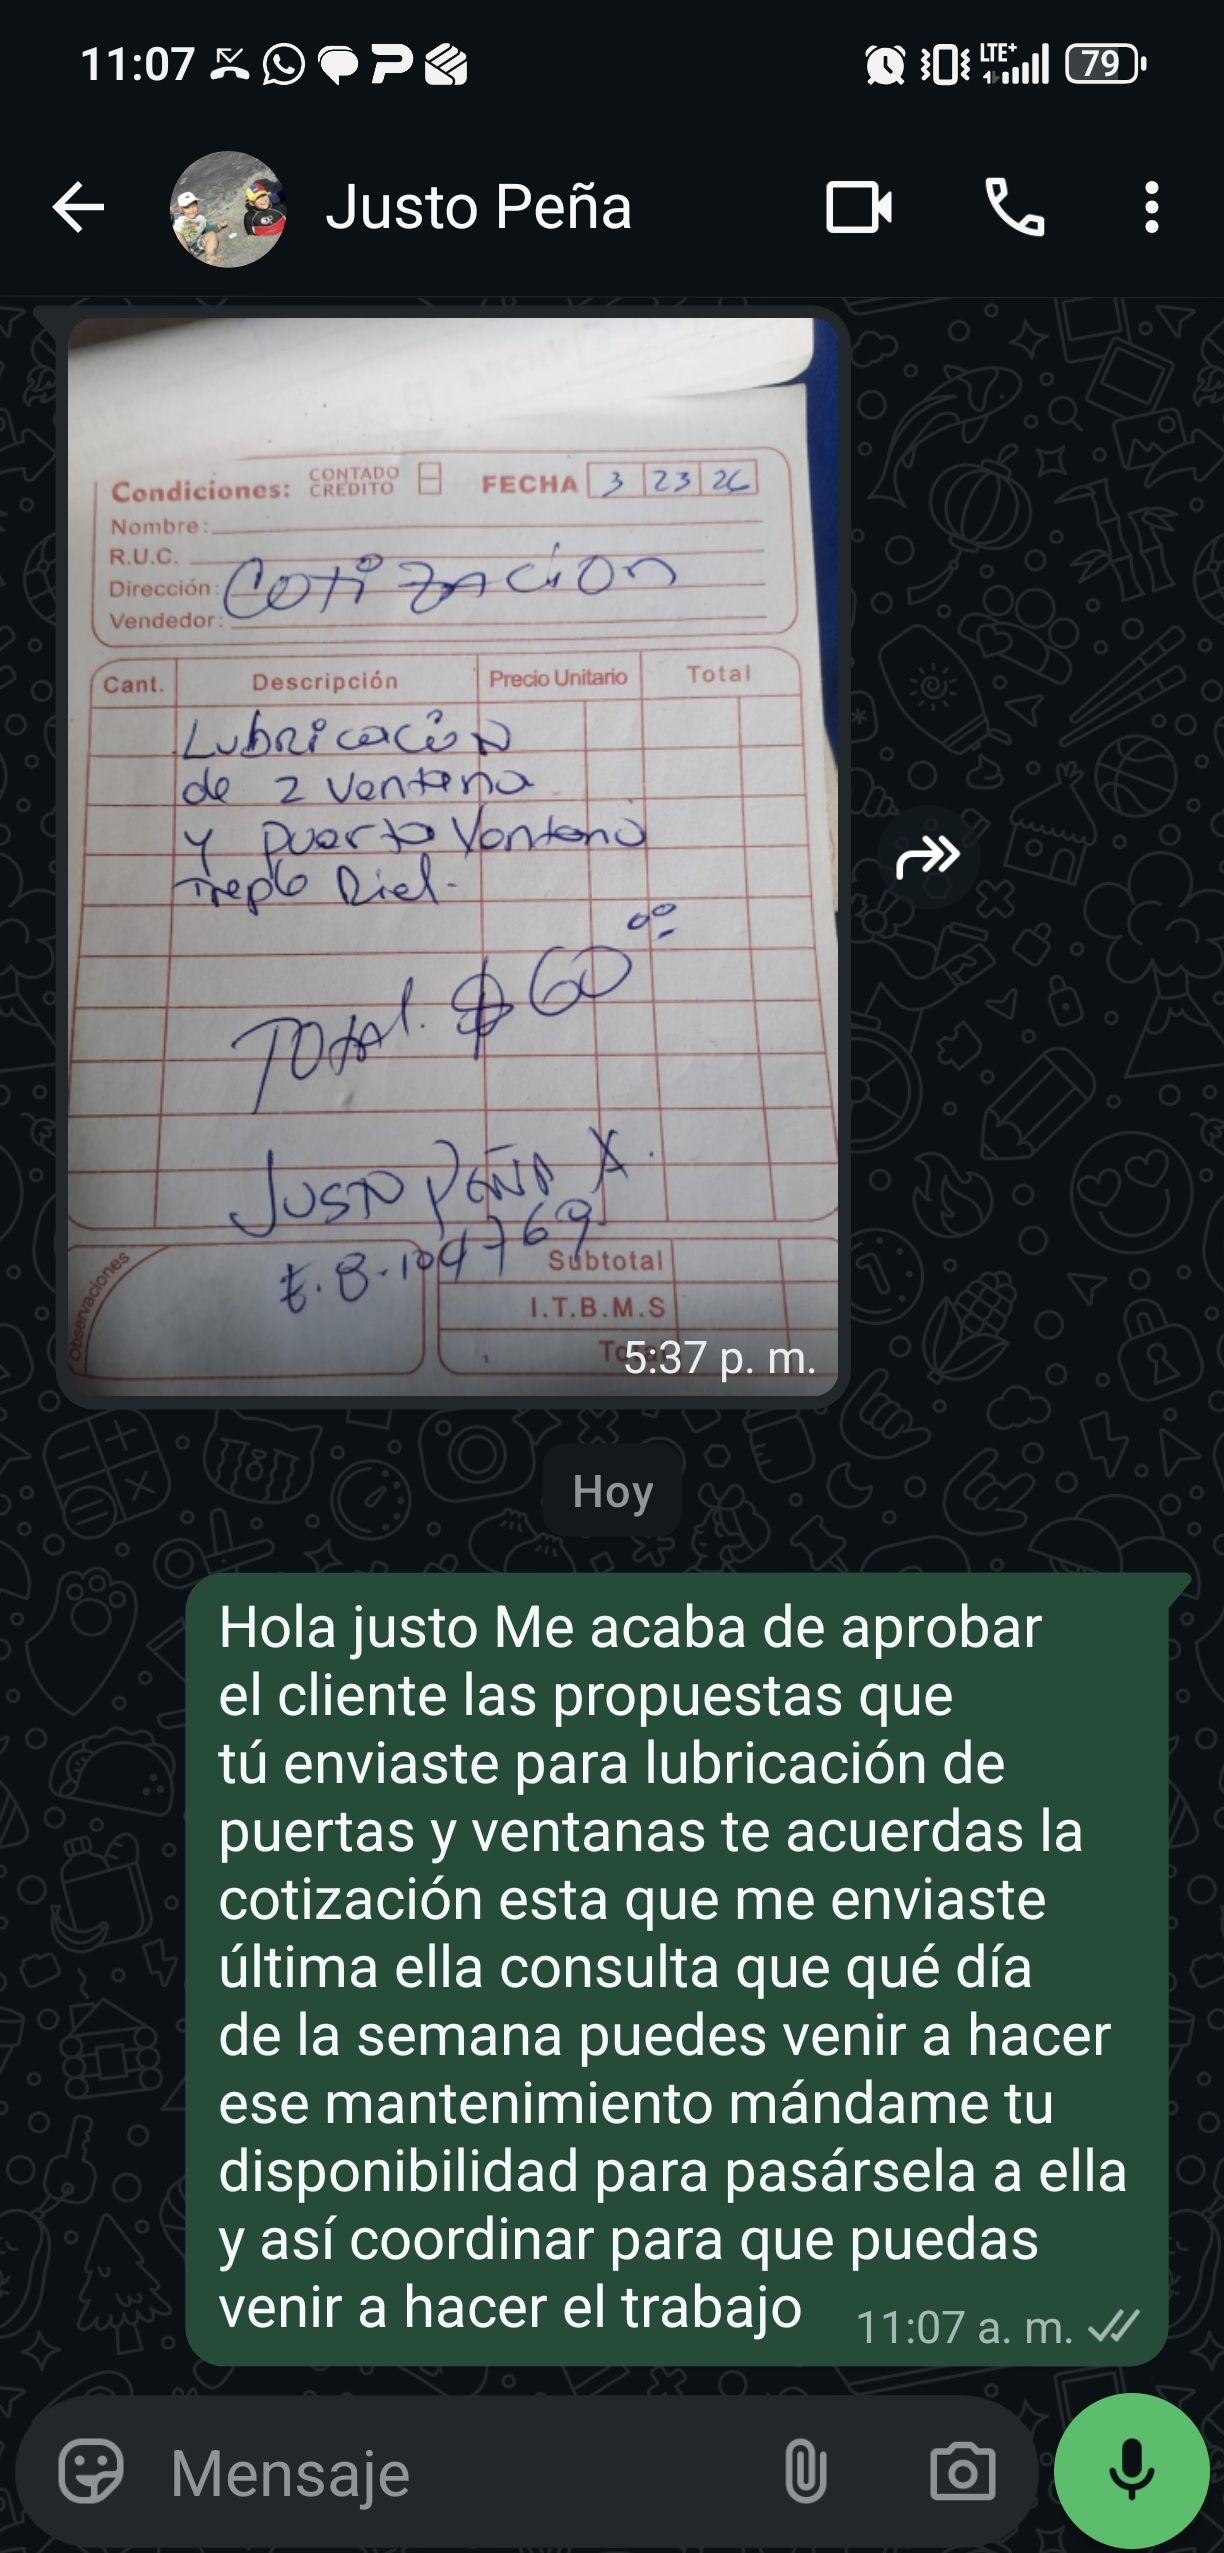 11:07
LTE+
79
Justo Peña
Condiciones: CONTADO CRÉDITO FECHA 3 23 26
Nombre:
R.U.C.
Dirección:
Cotización
Vendedor:
Cant. Descripción Precio Unitario Total
Lubricación
de 2 Ventana
y puerta Ventana
Riel.
Total. $60.00
Justo Peña X.
E.8.104769
Observaciones
Subtotal
I.T.B.M.S
Total
5:37 p. m.
Hoy
Hola justo Me acaba de aprobar
el cliente las propuestas que
tú enviaste para lubricación de
puertas y ventanas te acuerdas la
cotización esta que me enviaste
última ella consulta que qué día
de la semana puedes venir a hacer
ese mantenimiento mándame tu
disponibilidad para pasársela a ella
y así coordinar para que puedas
venir a hacer el trabajo
11:07 a. m.
Mensaje